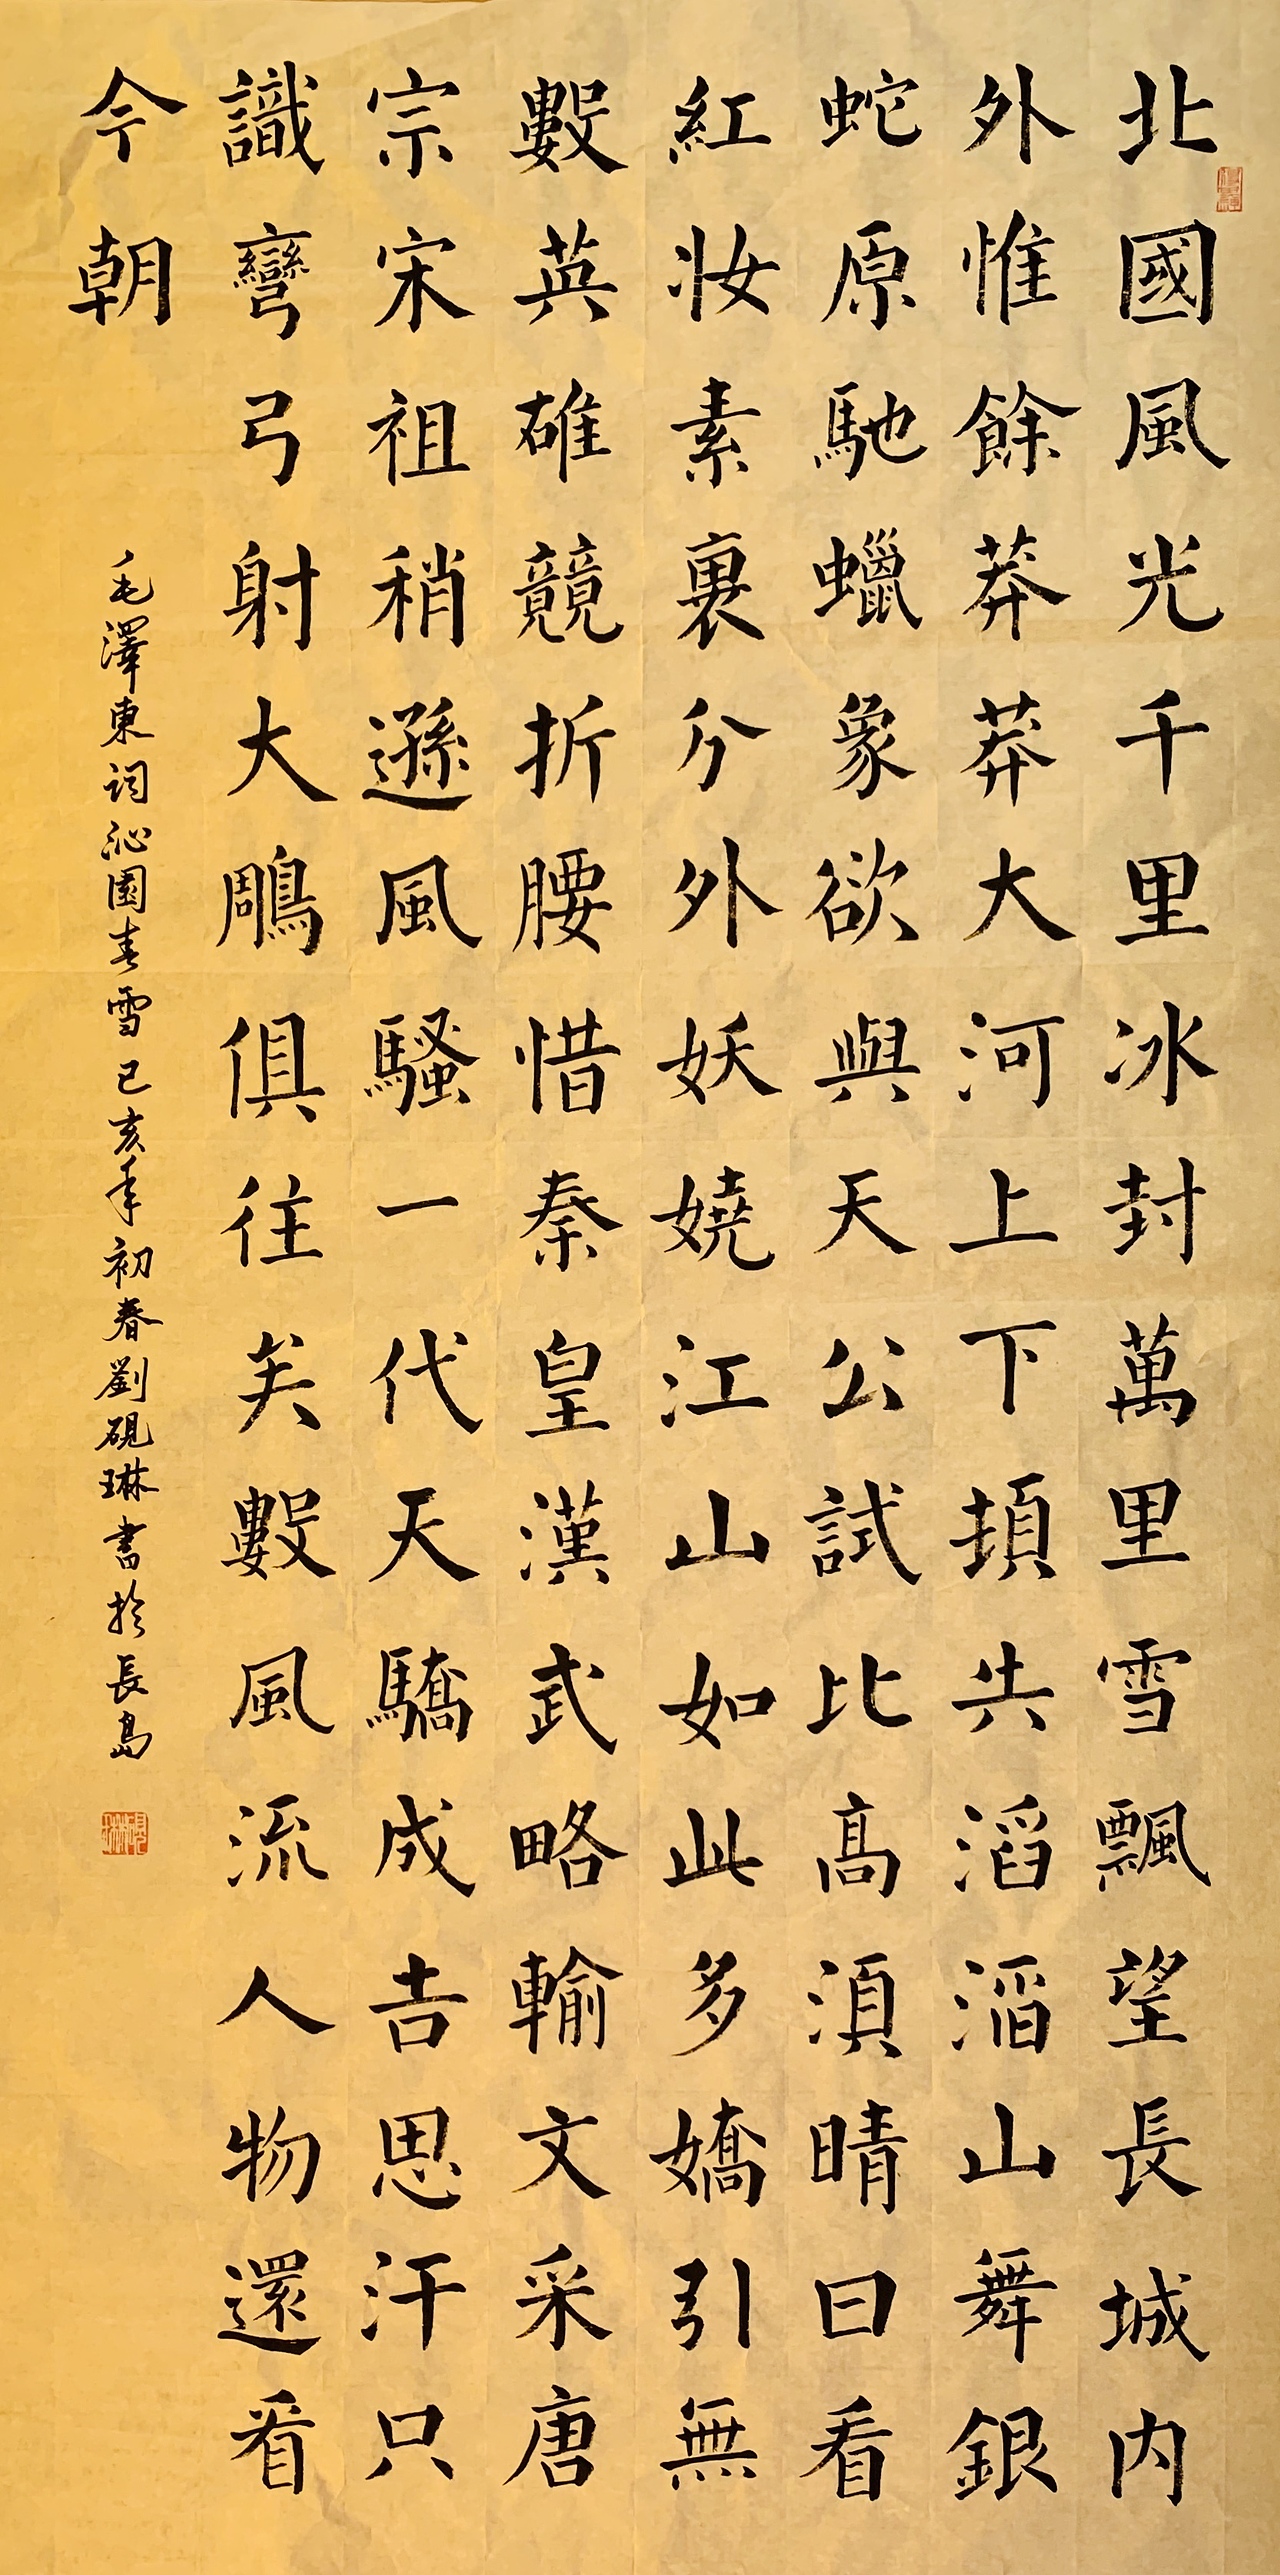 北國風光千里冰封萬里雪飄望長城内
外惟餘莽莽大河上下頓共滔滔山舞銀
蛇原馳蠟象欲與天公試比高須晴日看
紅妆素裹分外妖嬈江山如此多嬌引無
數英雄競折腰惜秦皇漢武略輸文采唐
宗宋祖稍遜風騷一代天驕成吉思汗只
識彎弓射大鵰俱往矣數風流人物還看
今朝
毛澤東詞沁園春雪己亥年初春劉硯琳書於長島
硯琳